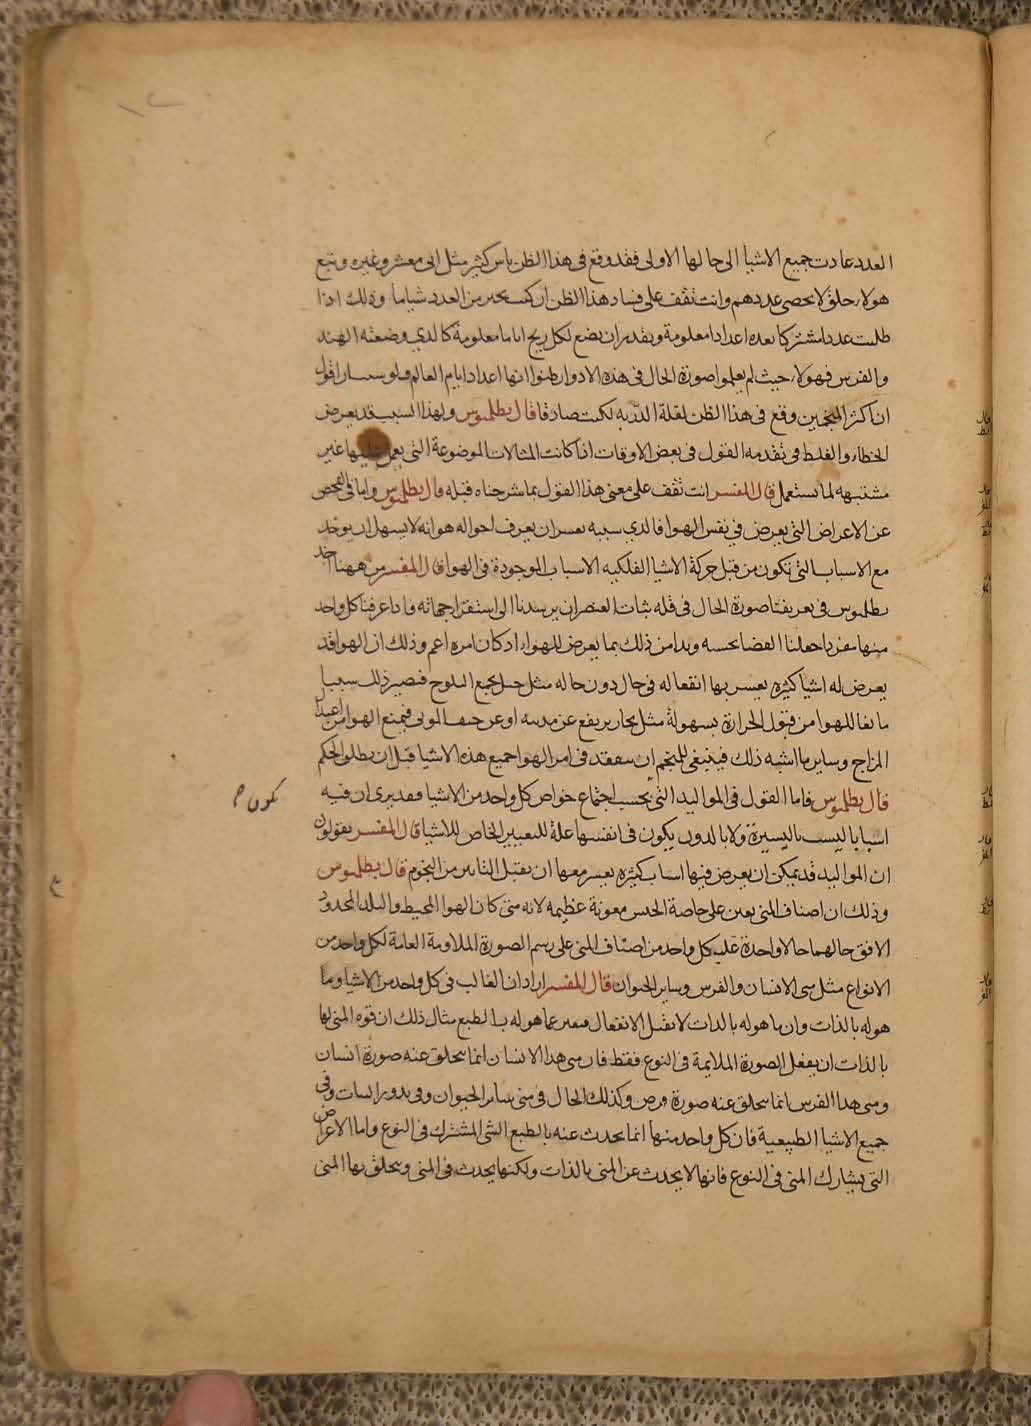 العدد عادت جميع الاشيا الى حالها الاولى فقد وقع فى هذا الظن ناس كثير مثل ابى معشر وغيره وتبع
هولاء خلق لا يحصى عددهم وانت تقف على فساد هذا الظن ان كنت من العدد شيا ما وذلك اذا
طلبت عددا مشتركا بعده اعدادا معلومة وبعد ان تضع لكل ريح اياما معلومة كالذي وضعته الهند
والفرس فهولاء حيث لم يعلموا صورة الحال فى هذه الادوار ظنوا انها اعداد ايام العالم ولو اقول
ان اكثر المنجمين وقع فى هذا الظن لقلة الدربه لكنت صادقا قال بطلميوس ولهذا السبب قد يعرض
الخطاء والغلط فى تقدمه القول فى بعض الاوقات اذا كانت المثالات الموضوعة التى يعمل عليها غير
مشتبهه لما يستعمل قال المفسر انت تقف على معنى هذا القول بما شرحناه قبله قال بطلميوس واما فى الفحص
عن الاعراض التى يعرض في نفس الهوا فالذي سببه يعسر ان يعرف احواله هو انه لا يسهل ان يوخذ
مع الاسباب التى تكون من قبل حركة الاشيا الفلكيه الاسباب الموجودة فى الهوا قال المفسر من ههنا اخذ
بطلميوس فى تعريفنا صورة الحال فى قلة ثبات العنصران يرشدنا الى استقرا جهاته فاذا عرفنا كل واحد
منها مفردا جعلنا القضا بحسبه وبدا من ذلك بما يعرض للهواء اذ كان امره اعم وذلك ان الهوا قد
يعرض له اشيا كثيره يعسر بها انفعاله فى حال دون حاله مثل جبل يجمع الثلوج فيصير ذلك سببا
مانعا للهوا من قبول الحرارة بسهولة مثل بخار يرتفع عن مدينه او عن جيف الموتى فيمنع الهوا من اعتدال
المزاج وساير ما اشبه ذلك فينبغى للمنجم ان يتفقد فى امر الهوا جميع هذه الاشيا قبل ان يطلق الحكم
قال بطلميوس فاما القول فى المواليد التى بحسب اجتماع خواص كل واحد من الاشيا فقد يرى ان فيه
اسبابا ليست باليسيرة ولا بالدون يكون فى انفسها علة للتغيير الخاص للاشيا قال المفسر يقول
ان المواليد قد يمكن ان يعرض فيها اسباب كثيره يعسر معها ان يقبل التاثير من النجوم قال بطلميوس
وذلك ان اصناف المنى يعين على خاصة الجنس معونة عظيمه لانه متى كان الهوا المحيط والبلد المحدود
الافق حالهما حالا واحدة غلب كل واحد من اصناف المنى على رسم الصورة الملاومة العامة لكل واحد من
الانواع مثل منى الانسان والفرس وساير الحيوان قال المفسر اراد ان الغالب فى كل واحد من الاشيا وما
هو له بالذات وان ما هو له بالذات لا يقبل الانفعال فيتغير عما هو له بالطبع مثال ذلك ان قوه المنى لها
بالذات ان يفعل الصورة الملايمة فى النوع فقط فان منى هذا الانسان انما يتخلق عنه صورة انسان
ومنى هذا الفرس انما يتخلق عنه صورة فرس وكذلك الحال فى منى ساير الحيوان وفى بذور النبات وفى
جميع الاشيا الطبيعية فان كل واحد منها انما يحدث عنه بالطبع الشى المشترك فى النوع واما الاعراض
التى يشارك المنى فى النوع فانها لا يحدث عن المنى بالذات ولكنها يحدث فى المنى ويتخلق بها المنى